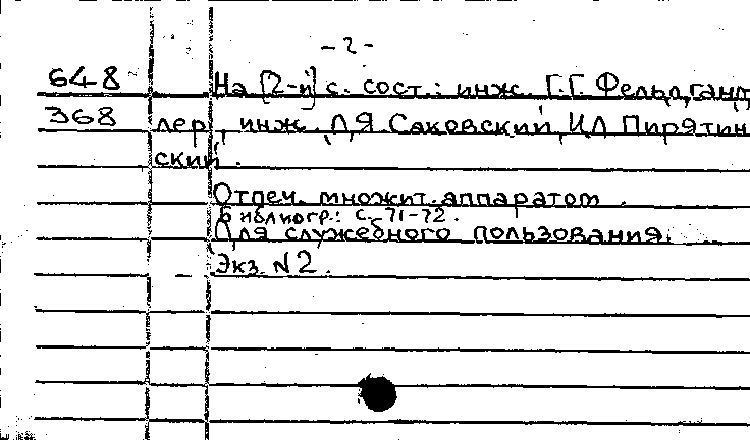 - 2 -
648 На [2-й] с. сост.: инж. Г.Г. Фельд,ганд
368 лер, инж. Л.Я. Саковский, И.Л. Пирятин
ский.
Отпеч. множит. аппаратом.
Библиогр.: с. 71-72.
Для служебного пользования.
Экз. N 2.